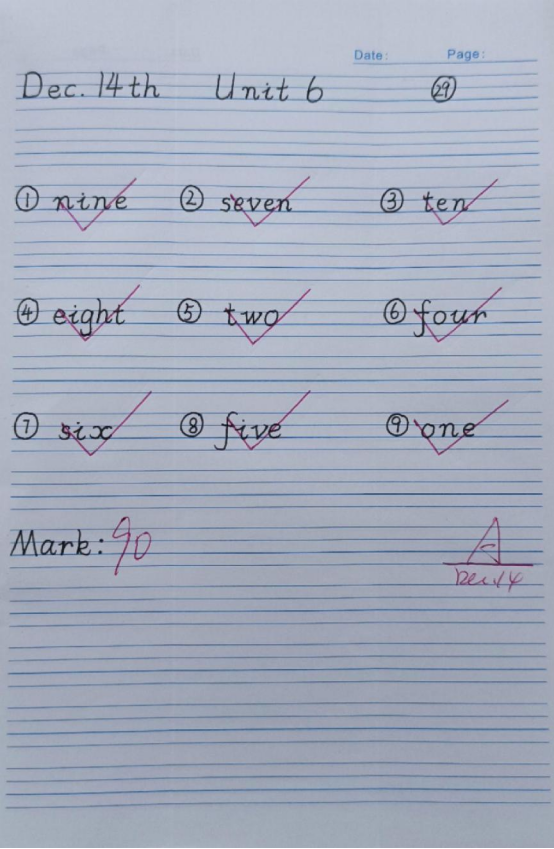 Date: Page:
Dec. 14th Unit 6 ㉙
① nine ② seven ③ ten
④ eight ⑤ two ⑥ four
⑦ six ⑧ five ⑨ one
Mark: 90 A
Dec.14